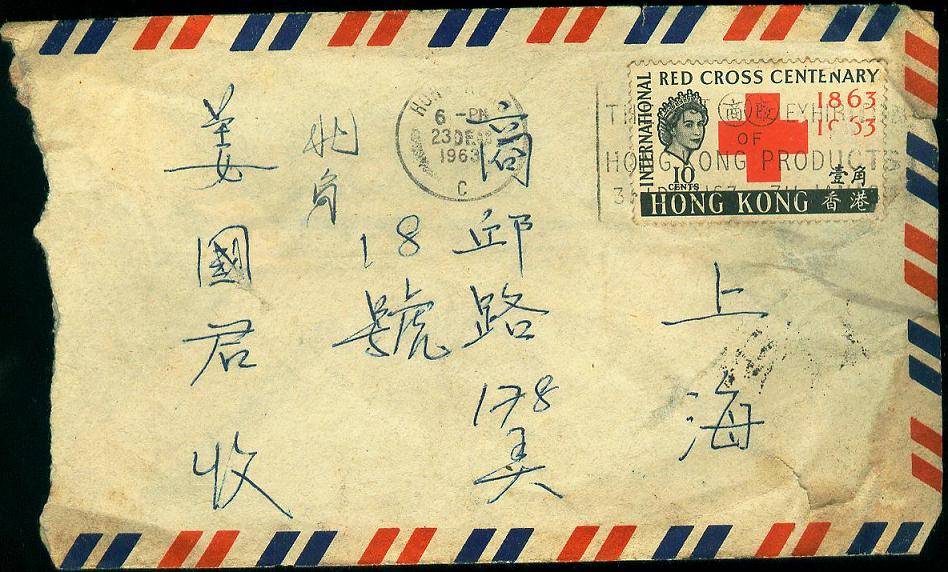 上海
商邱路178弄
18號
北角
姜國君收
HONG KONG
6 - PM
23 DE
1963
C
INTERNATIONAL
RED CROSS CENTENARY
1863
1963
10
CENTS
壹角
HONG KONG 香港
OF
HONG KONG PRODUCTS